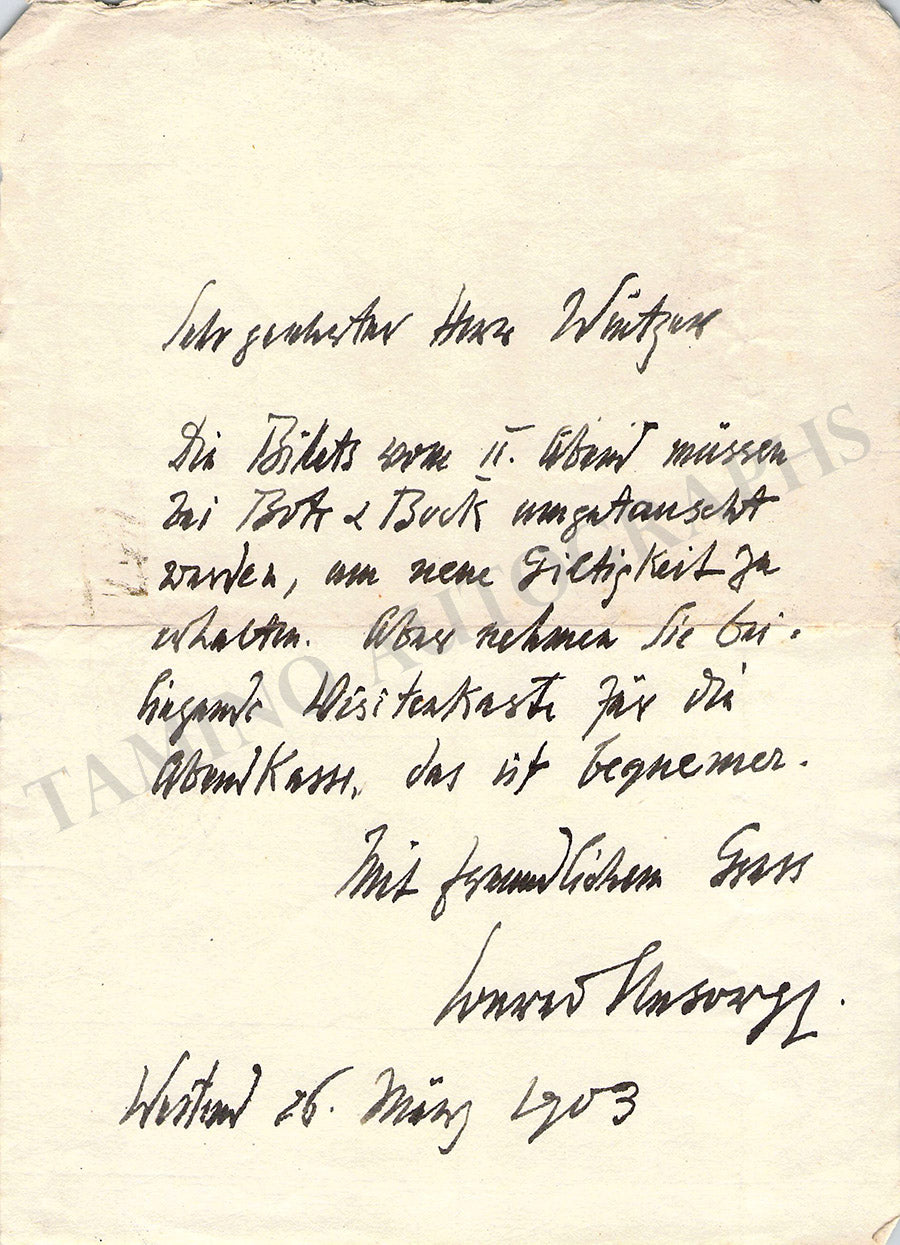 Sehr geehrter Herr Wintzer
Die Billets vom II. Abend müssen
bei Bote & Bock umgetauscht
werden, um neue Giltigkeit zu
erhalten. Aber nehmen Sie bei-
liegende Visitenkarte für die
Abendkasse, das ist bequemer.
Mit freundlichem Gruss
Conrad Ansorge.
Westend 26. März 1903
TAMINO AUTOGRAPHS